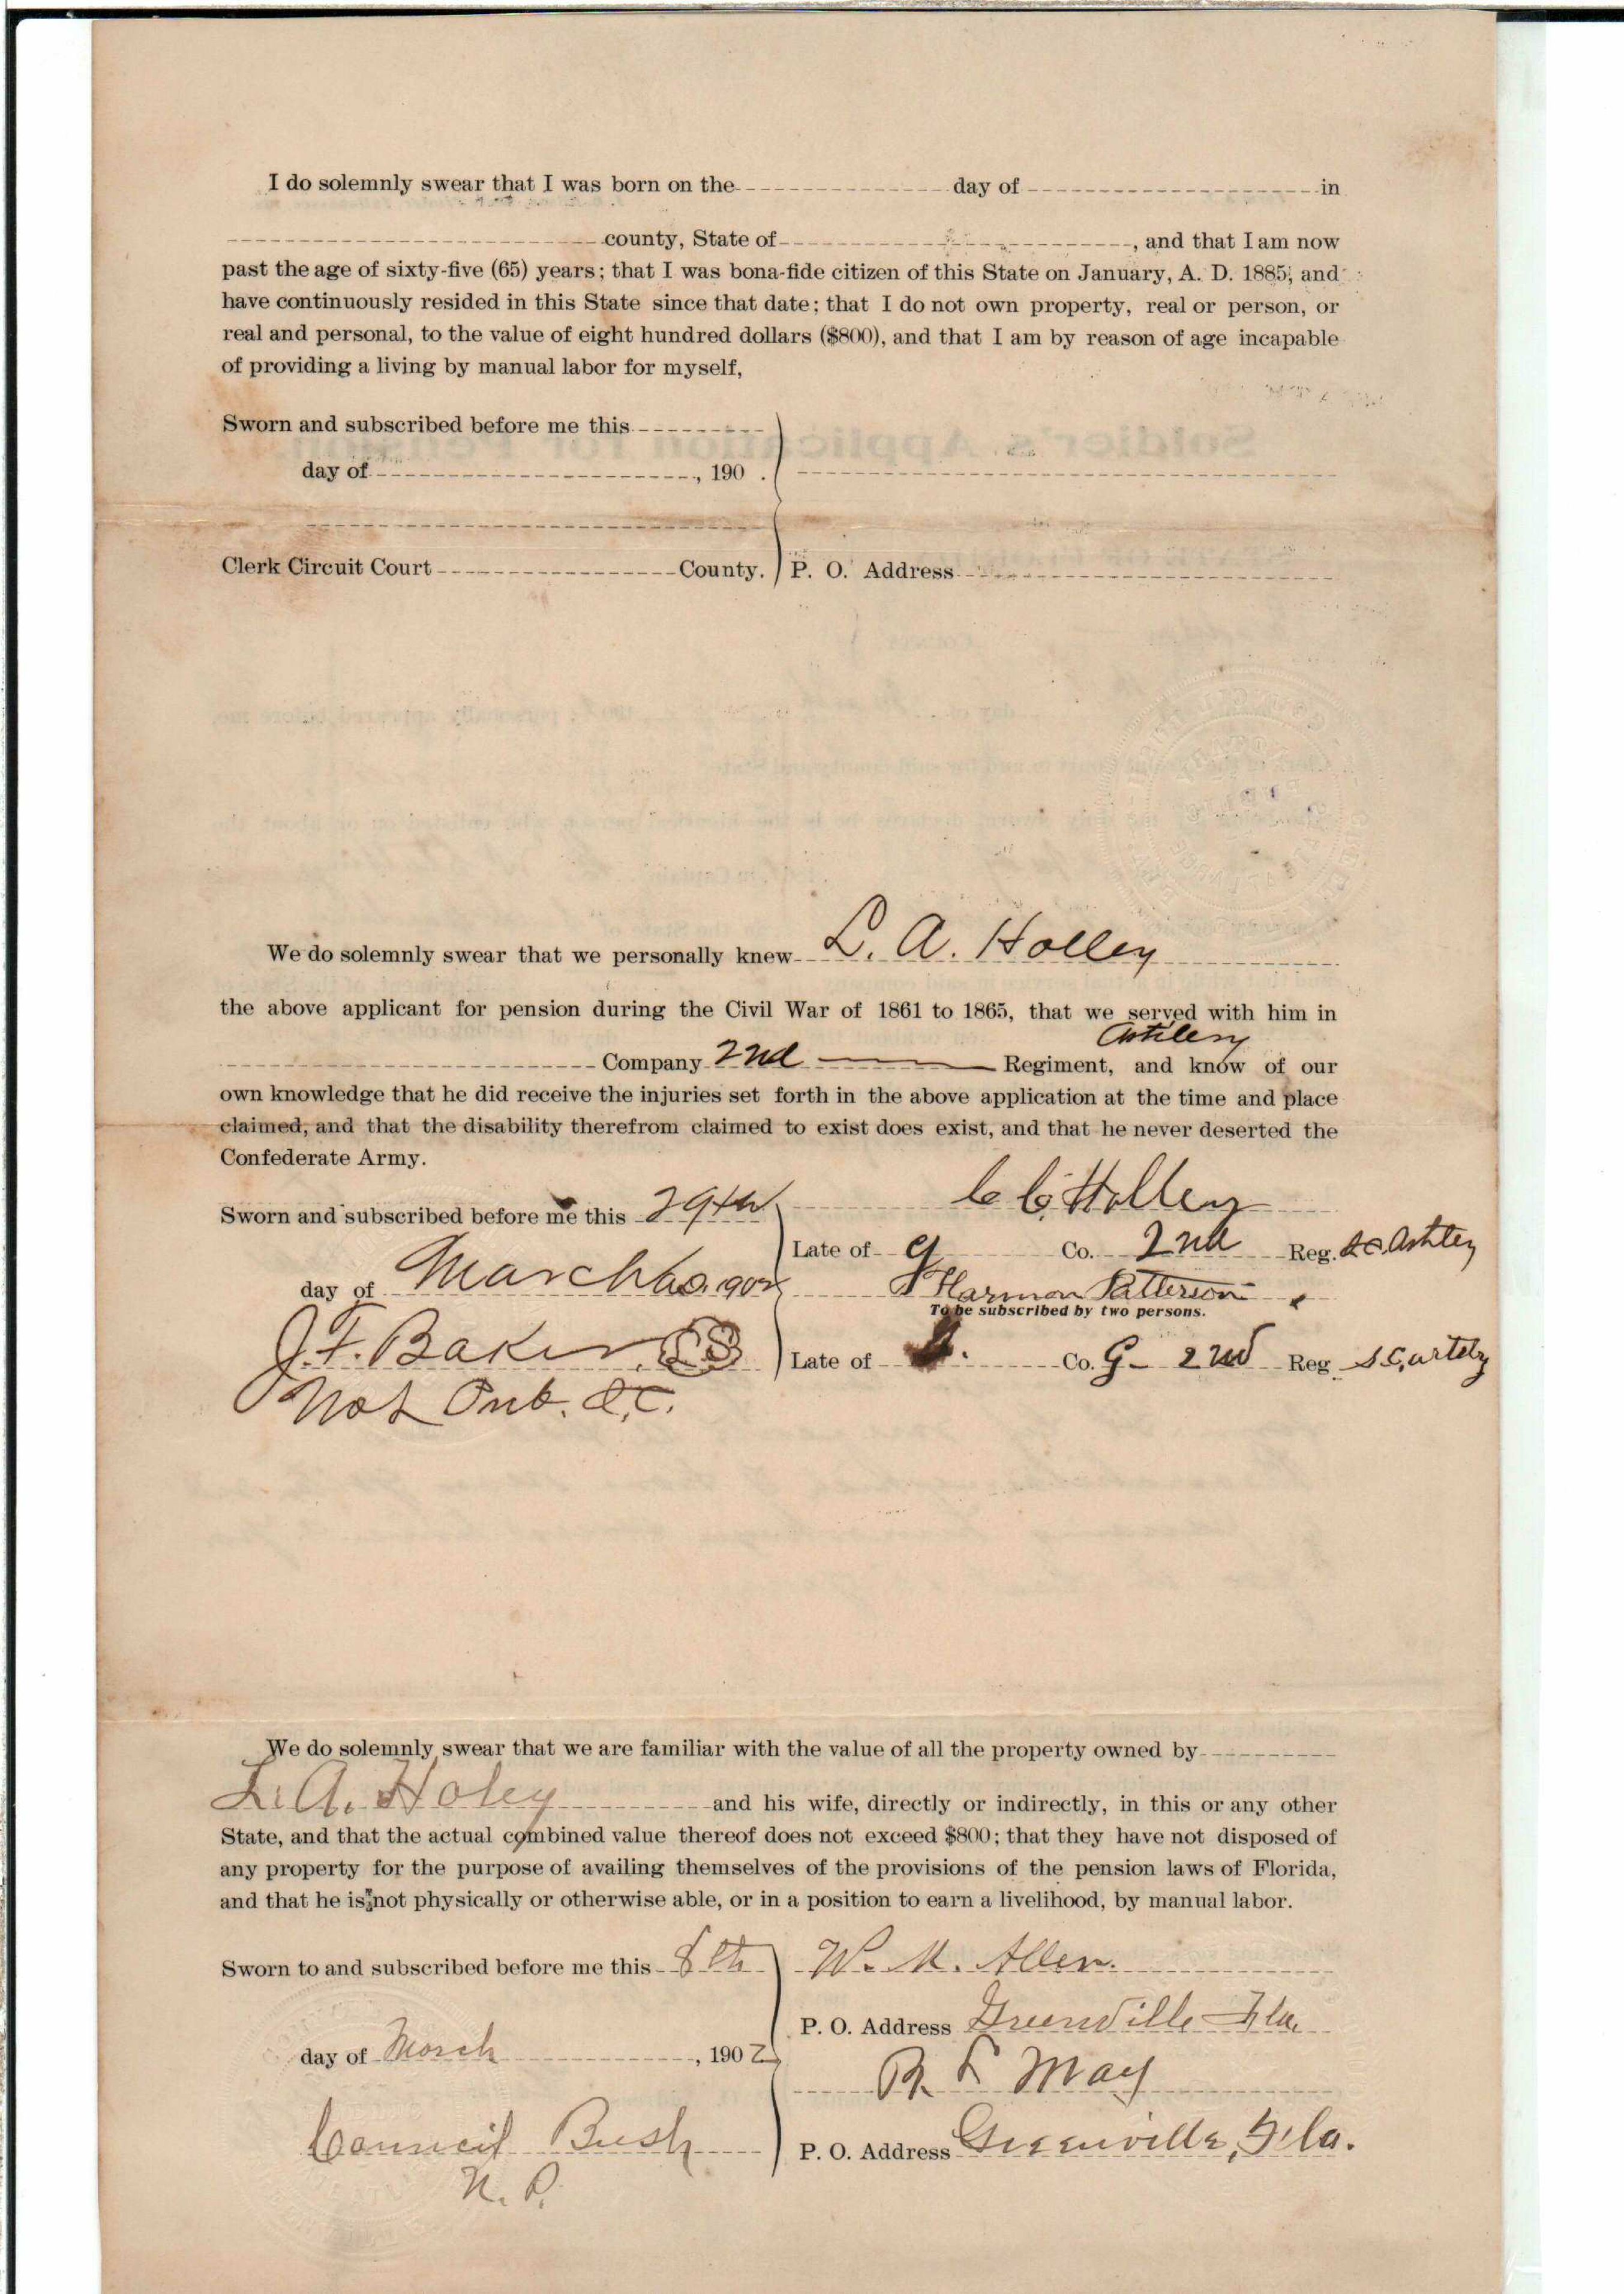 I do solemnly swear that I was born on the day of in
county, State of , and that I am now
past the age of sixty-five (65) years; that I was bona-fide citizen of this State on January, A. D. 1885, and
have continuously resided in this State since that date; that I do not own property, real or person, or
real and personal, to the value of eight hundred dollars ($800), and that I am by reason of age incapable
of providing a living by manual labor for myself,
Sworn and subscribed before me this
day of , 190 .
Clerk Circuit Court County. P. O. Address
We do solemnly swear that we personally knew L. A. Holley
the above applicant for pension during the Civil War of 1861 to 1865, that we served with him in
Artilery
Company 2nd Regiment, and know of our
own knowledge that he did receive the injuries set forth in the above application at the time and place
claimed, and that the disability therefrom claimed to exist does exist, and that he never deserted the
Confederate Army.
Sworn and subscribed before me this 29th C C Holley
Late of G Co. 2nd Reg. S C
day of March Harmon Patterson
To be subscribed by two persons.
J. F. Baker Late of Co. G - 2nd Reg S. C,
Not Pub. S.C.
We do solemnly swear that we are familiar with the value of all the property owned by
L. A. Holey and his wife, directly or indirectly, in this or any other
State, and that the actual combined value thereof does not exceed $800; that they have not disposed of
any property for the purpose of availing themselves of the provisions of the pension laws of Florida,
and that he is not physically or otherwise able, or in a position to earn a livelihood, by manual labor.
Sworn to and subscribed before me this 8th W. M. Allen.
P. O. Address Greenville Fla.
day of March , 1902
R. F. May
Council Bush P. O. Address Greenville, Fla.
N. P.